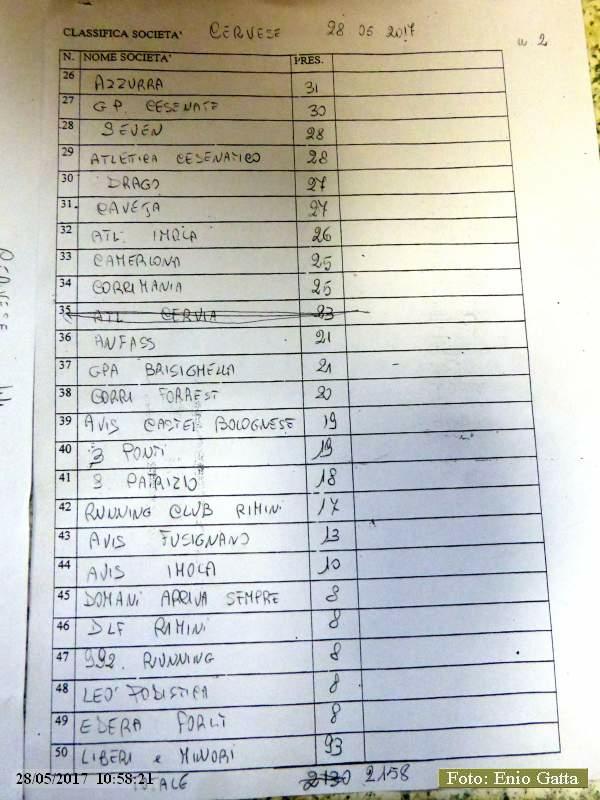 CLASSIFICA SOCIETA' CERVESE 28 05 2017
n 2
N. NOME SOCIETA' PRES.
26 AZZURRA 31
27 G.P. CESENATE 30
28 SEVEN 28
29 ATLETICA CESENATICO 28
30 DRAGO 27
31 CAVEJA 27
32 ATL. IMOLA 26
33 CAMERLONA 25
34 CORRIMANIA 25
35 ATL CERVIA 23
36 ANFASS 21
37 GPA BRISIGHELLA 21
38 CORRI FORREST 20
39 AVIS CASTEL BOLOGNESE 19
40 3 PONTI 19
41 S PATRIZIO 18
42 RUNNING CLUB RIMINI 17
43 AVIS FUSIGNANO 13
44 AVIS IMOLA 10
45 DOMANI ARRIVA SEMPRE 8
46 DLF RIMINI 8
47 992 RUNNING 8
48 LEO' PODISTICA 8
49 EDERA FORLÌ 8
50 LIBERI e MINORI 93
TOTALE 2130 2158
28/05/2017 10:58:21
Foto: Enio Gatta
CERVESE